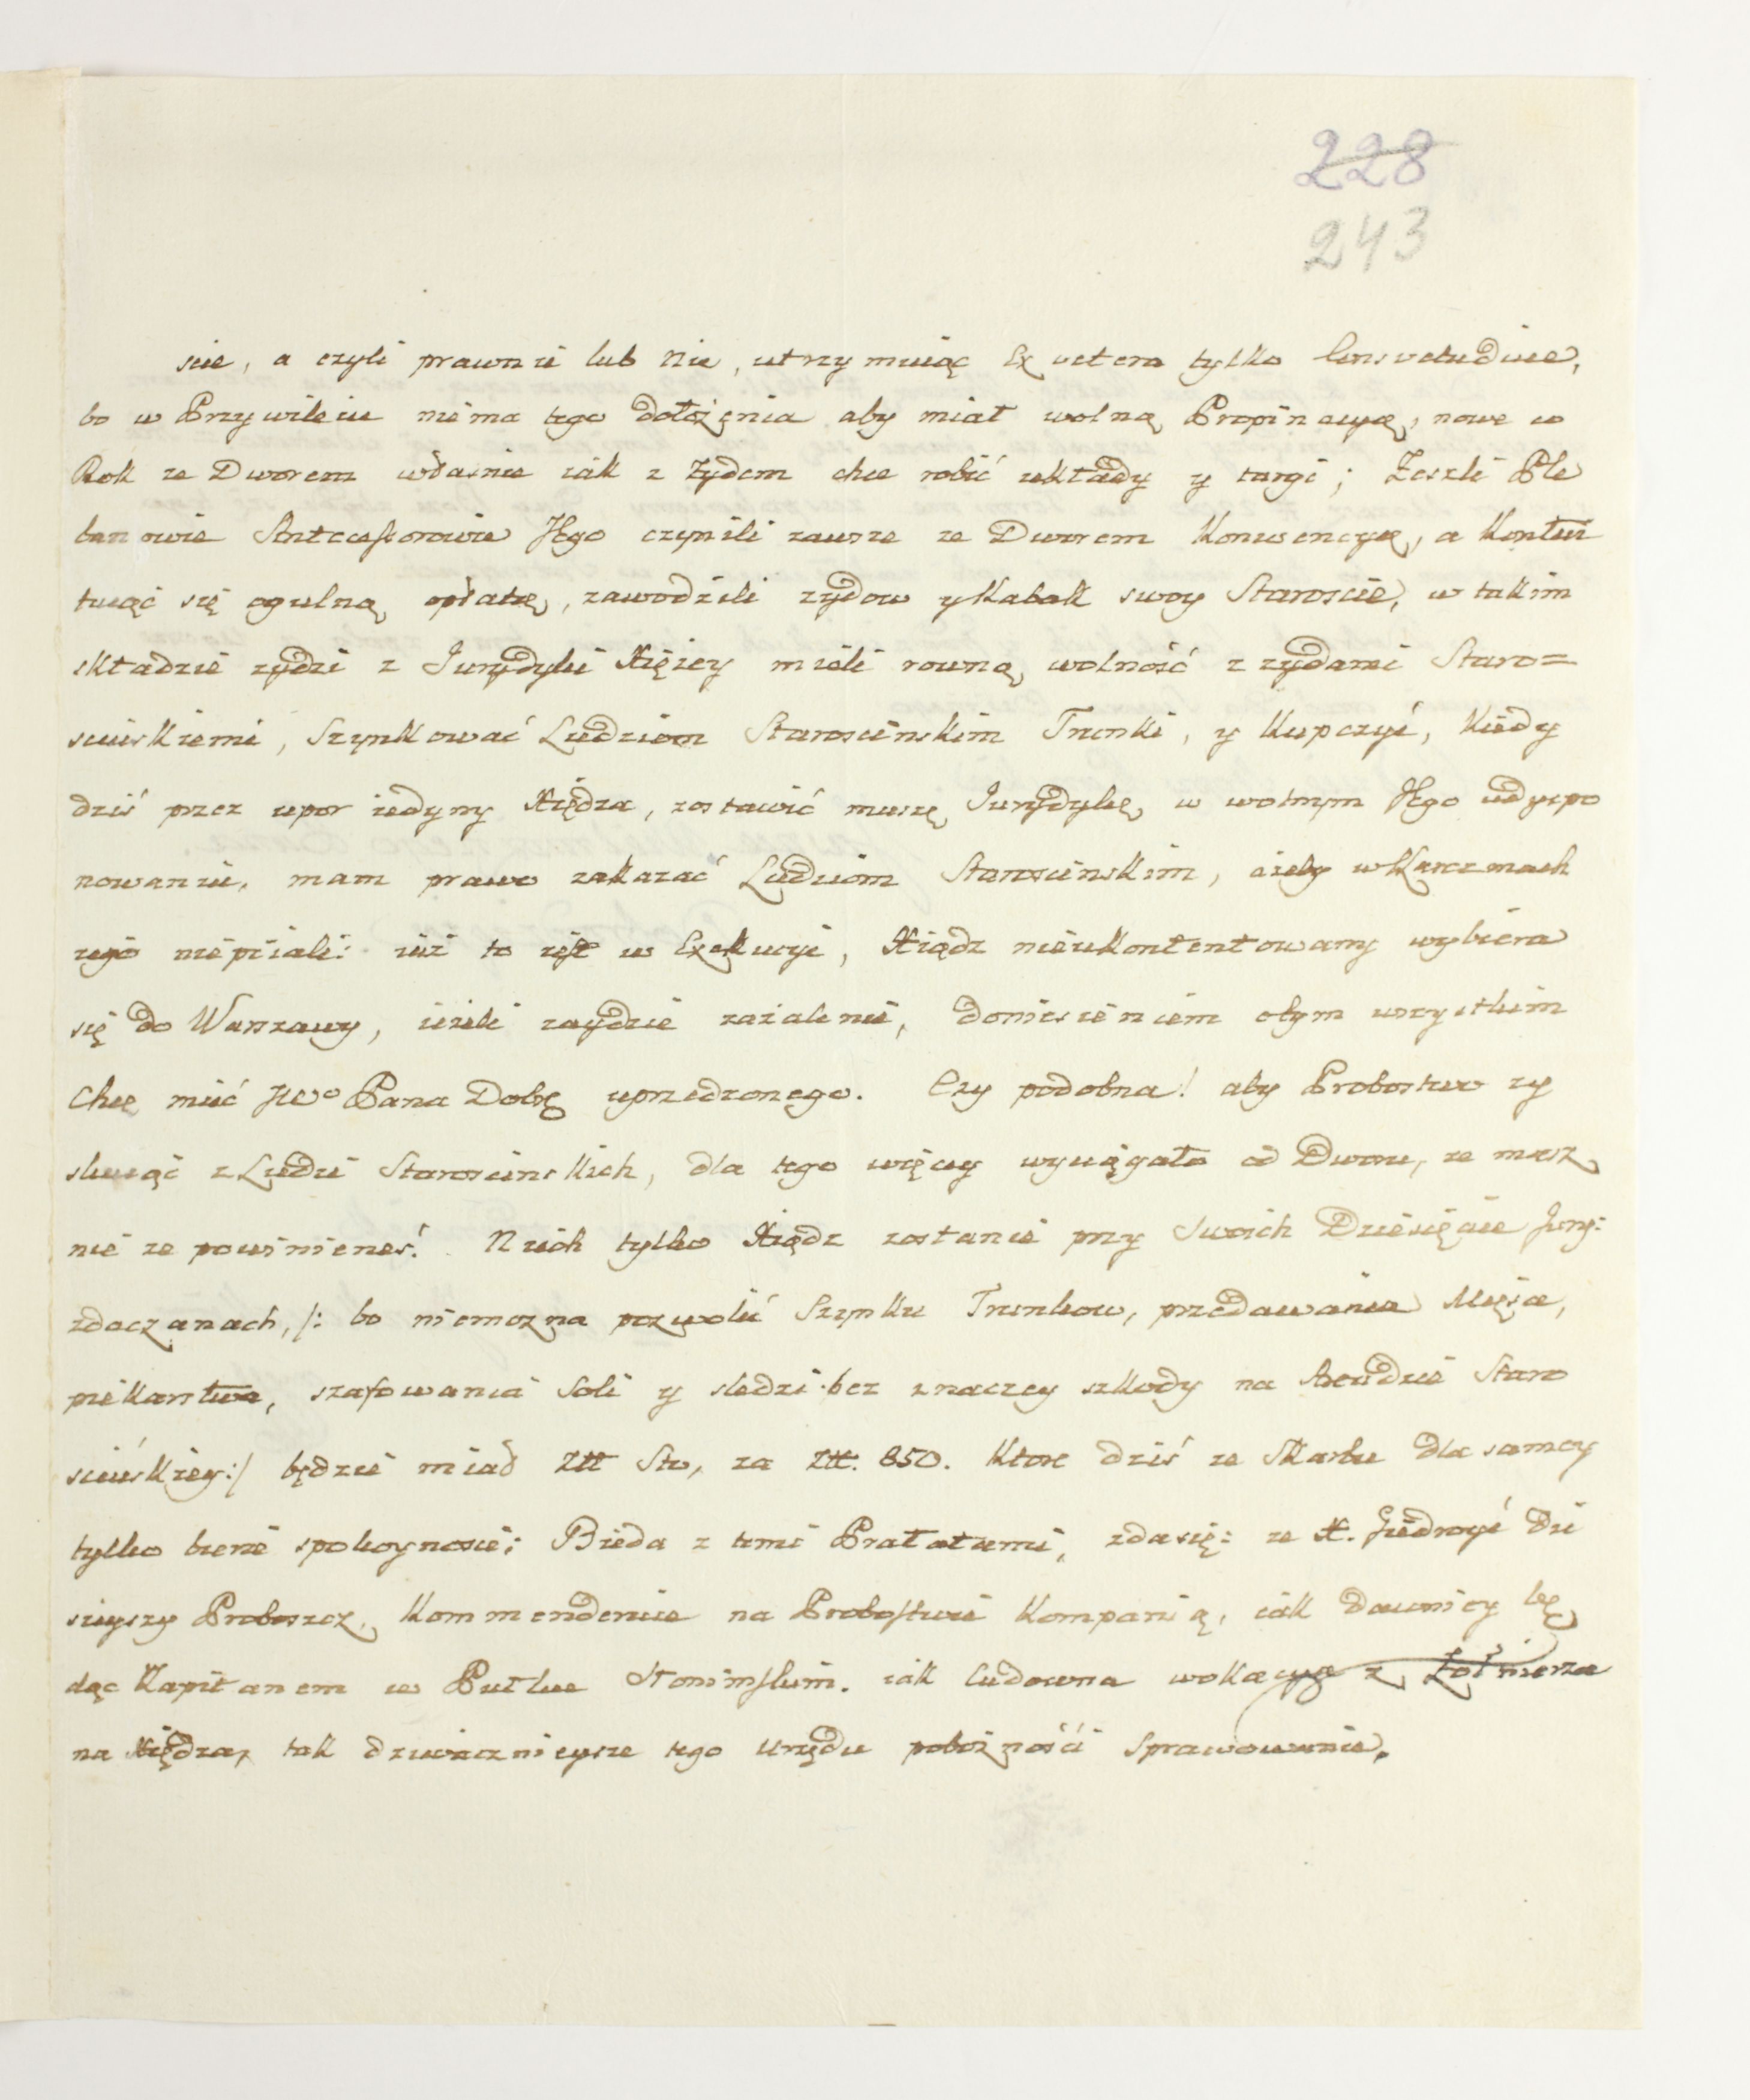 228
243
scie, a czyli prawnie lub nie, utrzymuiąc Ex vetera tylko Consvetudine,
bo w Przywileiu niema tego dołożenia aby miał wolną Propinacyą, nowe co
Rok ze Dworem własnie iak z Zydem chce robić układy y targi; Zeszli Ple
banowie Antecessorowie Jego czynili zawsze ze Dworem Konwencyę, a Konten
tuiąć się ogulną opłatą, zawodzili zydow y Kabak swoy Staroscie, w takim
składzie zydzi z Jurydyki Xięzey mieli rowną wolność z zydami Staro=
scinskiemi, Szynkować Ludziom Staroscinskim Trunki, y Kupczyć, Kiedy
dziś przez upor iedyny Xiędza, zostawić muszę Jurydykę w wolnym Jego udyspo
nowaniu, mam prawo zakazać Ludziom Staroscinskim, ażeby w Karczmach
iego niepiiali: iuż to iest w Exekucyi, Xiądz nieukontentowany wybiera
się do Warszawy, ieżeli zaydzie zażalenie, doniesieniem o tym wszystkim
Chcę mieć JWo Pana Dobę uprzedzonego. Czy podobna! aby Probostwo zy
skuiąć z Ludzi Staroscinskich, dla tego więcey wyciągało od Dworu, ze masz
nie ze powinieneś! Niech tylko Xiądz zostanie przy Swoich Dziesięcie Jury:
zdaczanach, /: bo niemozna pozwolić Szynku Trunkow, przedawania Mięsa,
piekarstwa, szafowania Soli y sledzi bez znaczey szkody na Arendzie Staro
scinskiey:/ będzie miał Złł Sto, za Złł. 850. Ktore dziś ze Skarbu dla samey
tylko bierze spokoynosci; Bieda z temi Prałatami, zda się: ze X. Giedroyć Dzi
sieyszy Proboszcz, Kommenderuie na Probostwie Kompanią, iak dawniey bę
dąc Kapitanem w Pułku Słonimskim. iak Cudowna wokacya z Żołnierza
na Xiędza, tak dziwacznieysze tego Urzędu pobożności Sprawowanie.